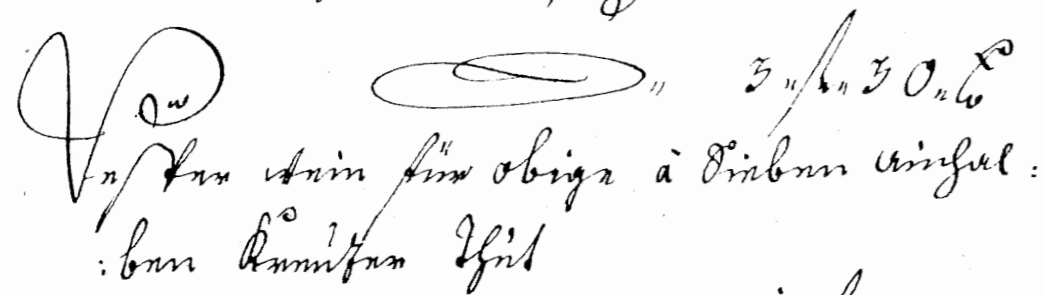 3 „ f „ 30 „ x
Vesper wein für obige à Sieben ainhal:
:ben Kreüzer Thüt